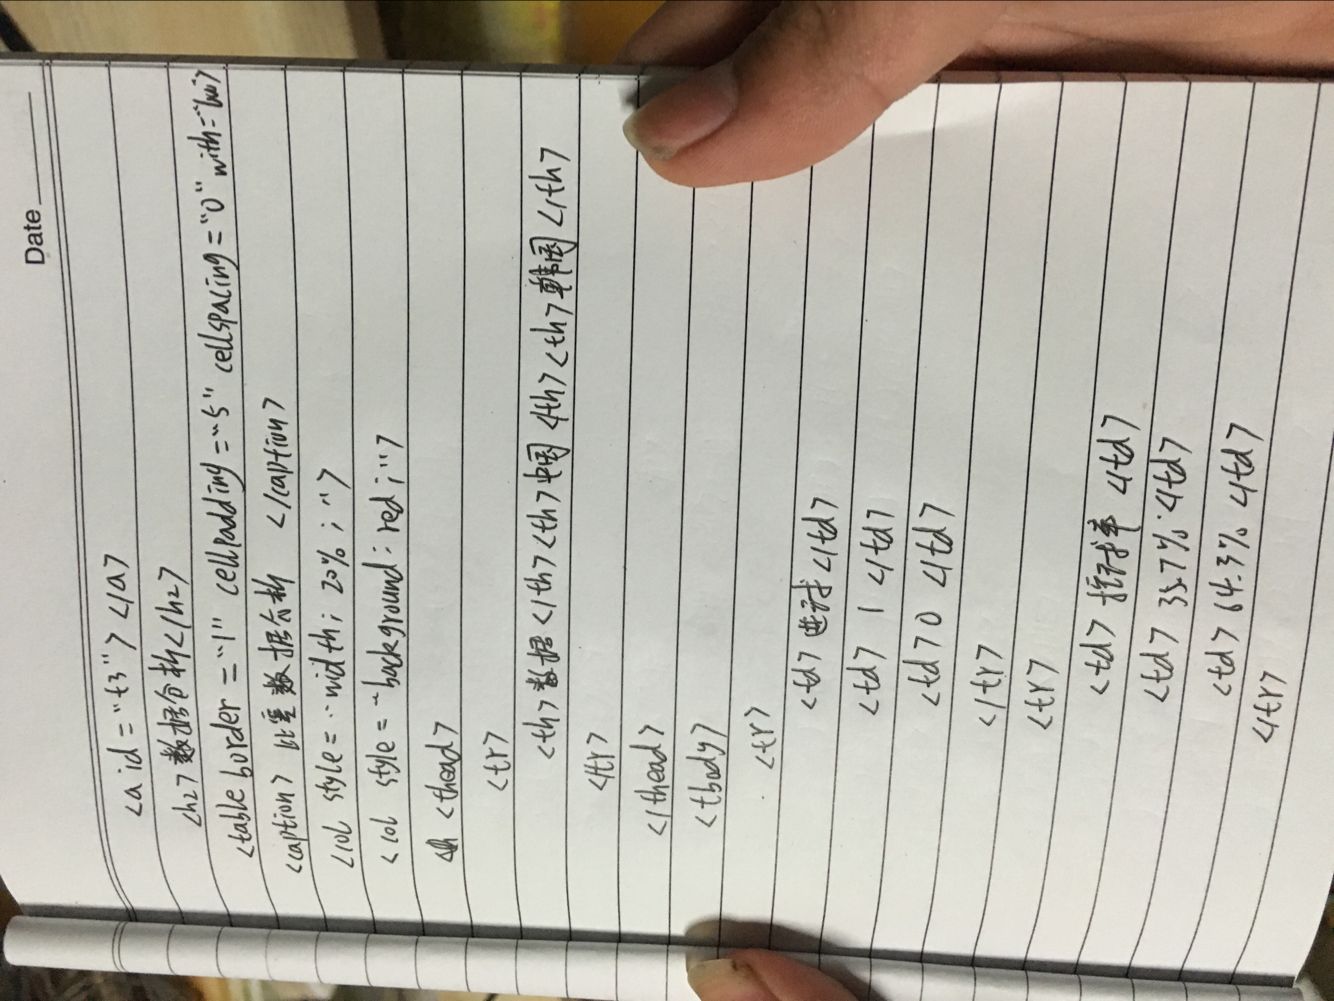 Date
<a id="t3"></a>
<h2>数据分析</h2>
<table border="1" cellpadding="5" cellspacing="0" with=
<caption> 比赛数据分析 </caption>
<col style="width; 20%;">
<col style="background: red;">
<thead>
<tr>
<th>数据</th><th>中国</th><th>韩国</th>
</tr>
</thead>
<tbody>
<tr>
<td>进球</td>
<td> 1 </td>
<td>0 </td>
</tr>
<tr>
<td>控球率 </td>
<td> 35.7% </td>
<td> 64.3% </td>
</tr>